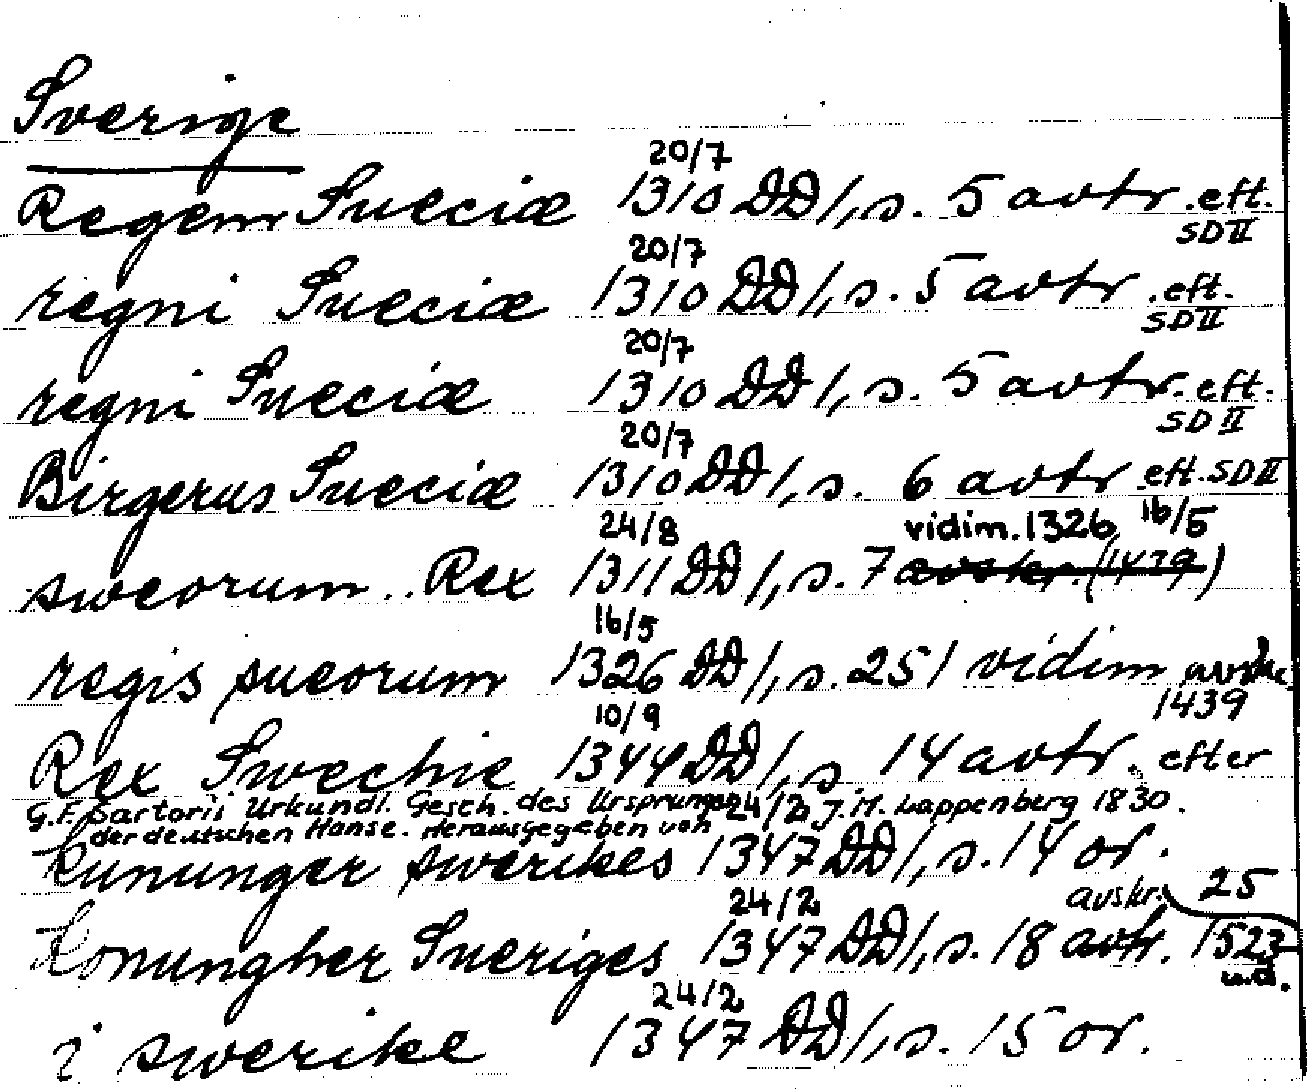 Sverige
20/7
Regem Sueciæ 1310 DD1, s. 5 avtr. eft.
SD II
20/7
regni Sueciæ 1310 DD1, s. 5 avtr. eft.
SD II
20/7
regni Sueciæ 1310 DD1, s. 5 avtr. eft.
SD II
20/7
Birgerus Sueciæ 1310 DD1, s. 6 avtr eft. SD II
24/8 vidim. 1326 16/5
sweorum .. Rex 1311 DD1, s. 7 avskr. (1479)
16/5
regis sueorum 1326 DD1, s. 251 vidim avskr.
1439
10/9
Rex Swechie 1344 DD1, s. 14 avtr. efter
G.F. Sartorii Urkundl. Gesch. des Ursprunges 24/2 J.M. Lappenberg 1830.
der deutschen Hanse. Herausgegeben von
kununger swerikes 1347 DD1, s. 14 or.
24/2 avskr. 25
konungher Sueriges 1347 DD1, s. 18 avtr. 1523
u.d.
24/2
i swerike 1347 DD1, s. 15 or.